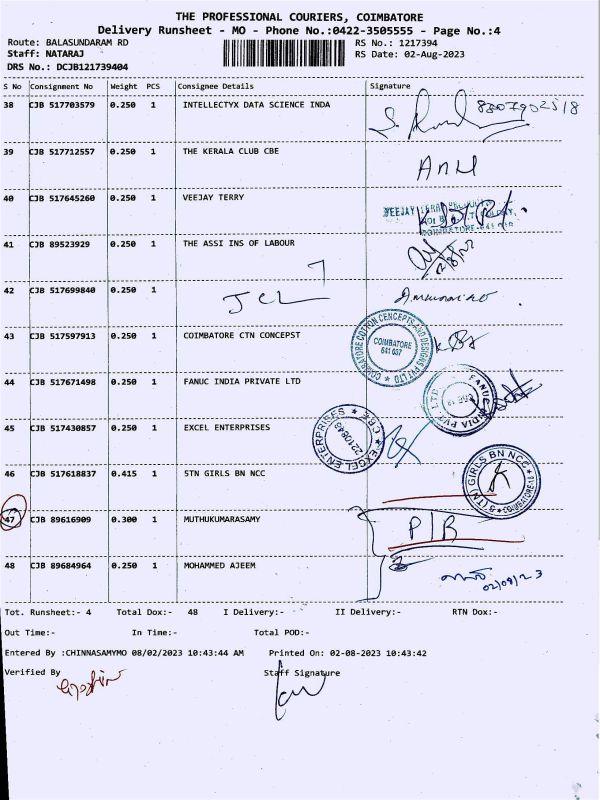 THE PROFESSIONAL COURIERS, COIMBATORE
Delivery Runsheet - MO - Phone No.:0422-3505555 - Page No.:4
Route: BALASUNDARAM RD RS No.: 1217394
Staff: NATARAJ RS Date: 02-Aug-2023
DRS No.: DCJB121739404
S No Consignment No Weight PCS Consignee Details Signature
38 CJB 517703579 0.250 1 INTELLECTYX DATA SCIENCE INDA
39 CJB 517712557 0.250 1 THE KERALA CLUB CBE
40 CJB 517645260 0.250 1 VEEJAY TERRY VEEJAY
41 CJB 89523929 0.250 1 THE ASSI INS OF LABOUR
42 CJB 517699840 0.250 1 JCL
43 CJB 517597913 0.250 1 COIMBATORE CTN CONCEPST
COIMBATORE COTTON CENCEPTS AND DESIGNS PVT LTD
COIMBATORE
641 037
44 CJB 517671498 0.250 1 FANUC INDIA PRIVATE LTD
FANUC INDIA PVT. LTD
45 CJB 517430857 0.250 1 EXCEL ENTERPRISES
EXCEL ENTERPRISES ★ CBE ★
2210846
46 CJB 517618837 0.415 1 5TN GIRLS BN NCC
5 (TN) GIRLS BN NCC ★ COIMBATORE-
47 CJB 89616909 0.300 1 MUTHUKUMARASAMY P/B
48 CJB 89684964 0.250 1 MOHAMMED AJEEM
02/08/23
Tot. Runsheet:- 4 Total Dox:- 48 I Delivery:- II Delivery:- RTN Dox:-
Out Time:- In Time:- Total POD:-
Entered By :CHINNASAMYMO 08/02/2023 10:43:44 AM Printed On: 02-08-2023 10:43:42
Verified By Staff Signature